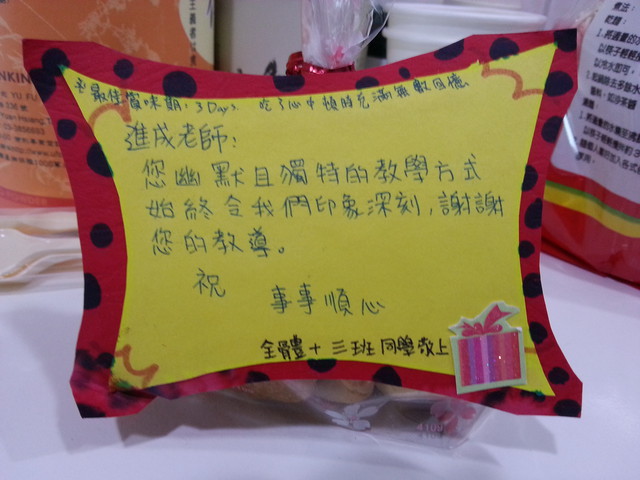 最佳賞味期:3Days. 吃了心中頓時充滿無數回憶
進成老師:
您幽默且獨特的教學方式
始終令我們印象深刻,謝謝
您的教導。
祝
事事順心
全體十三班同學敬上